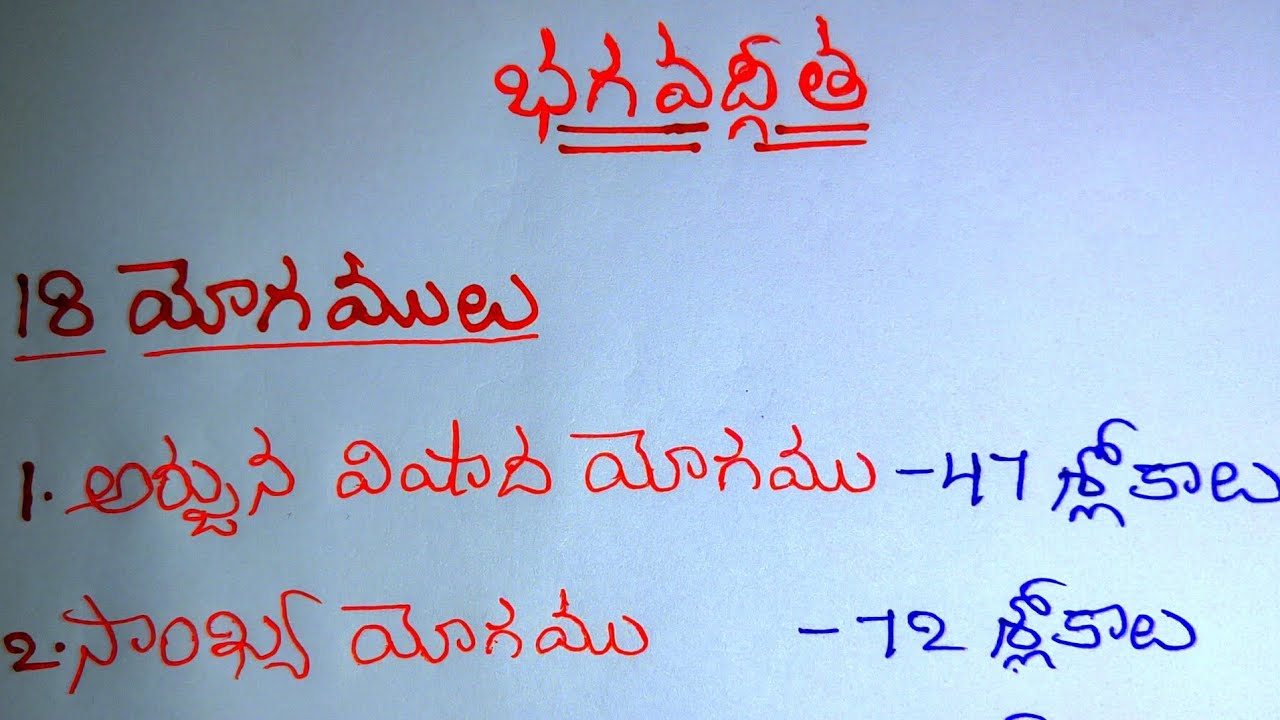 భగవద్గీత
18 యోగములు
1. అర్జున విషాద యోగము - 47 శ్లోకాలు
2. సాంఖ్య యోగము - 72 శ్లోకాలు